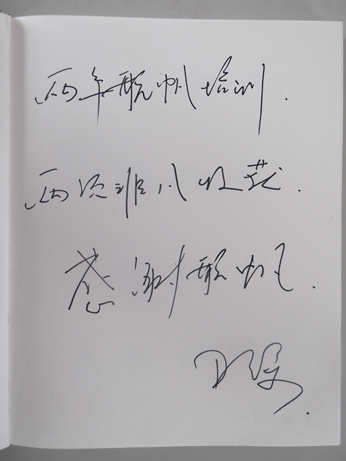 两年领帆培训.
两次非凡收获.
感谢领帆.